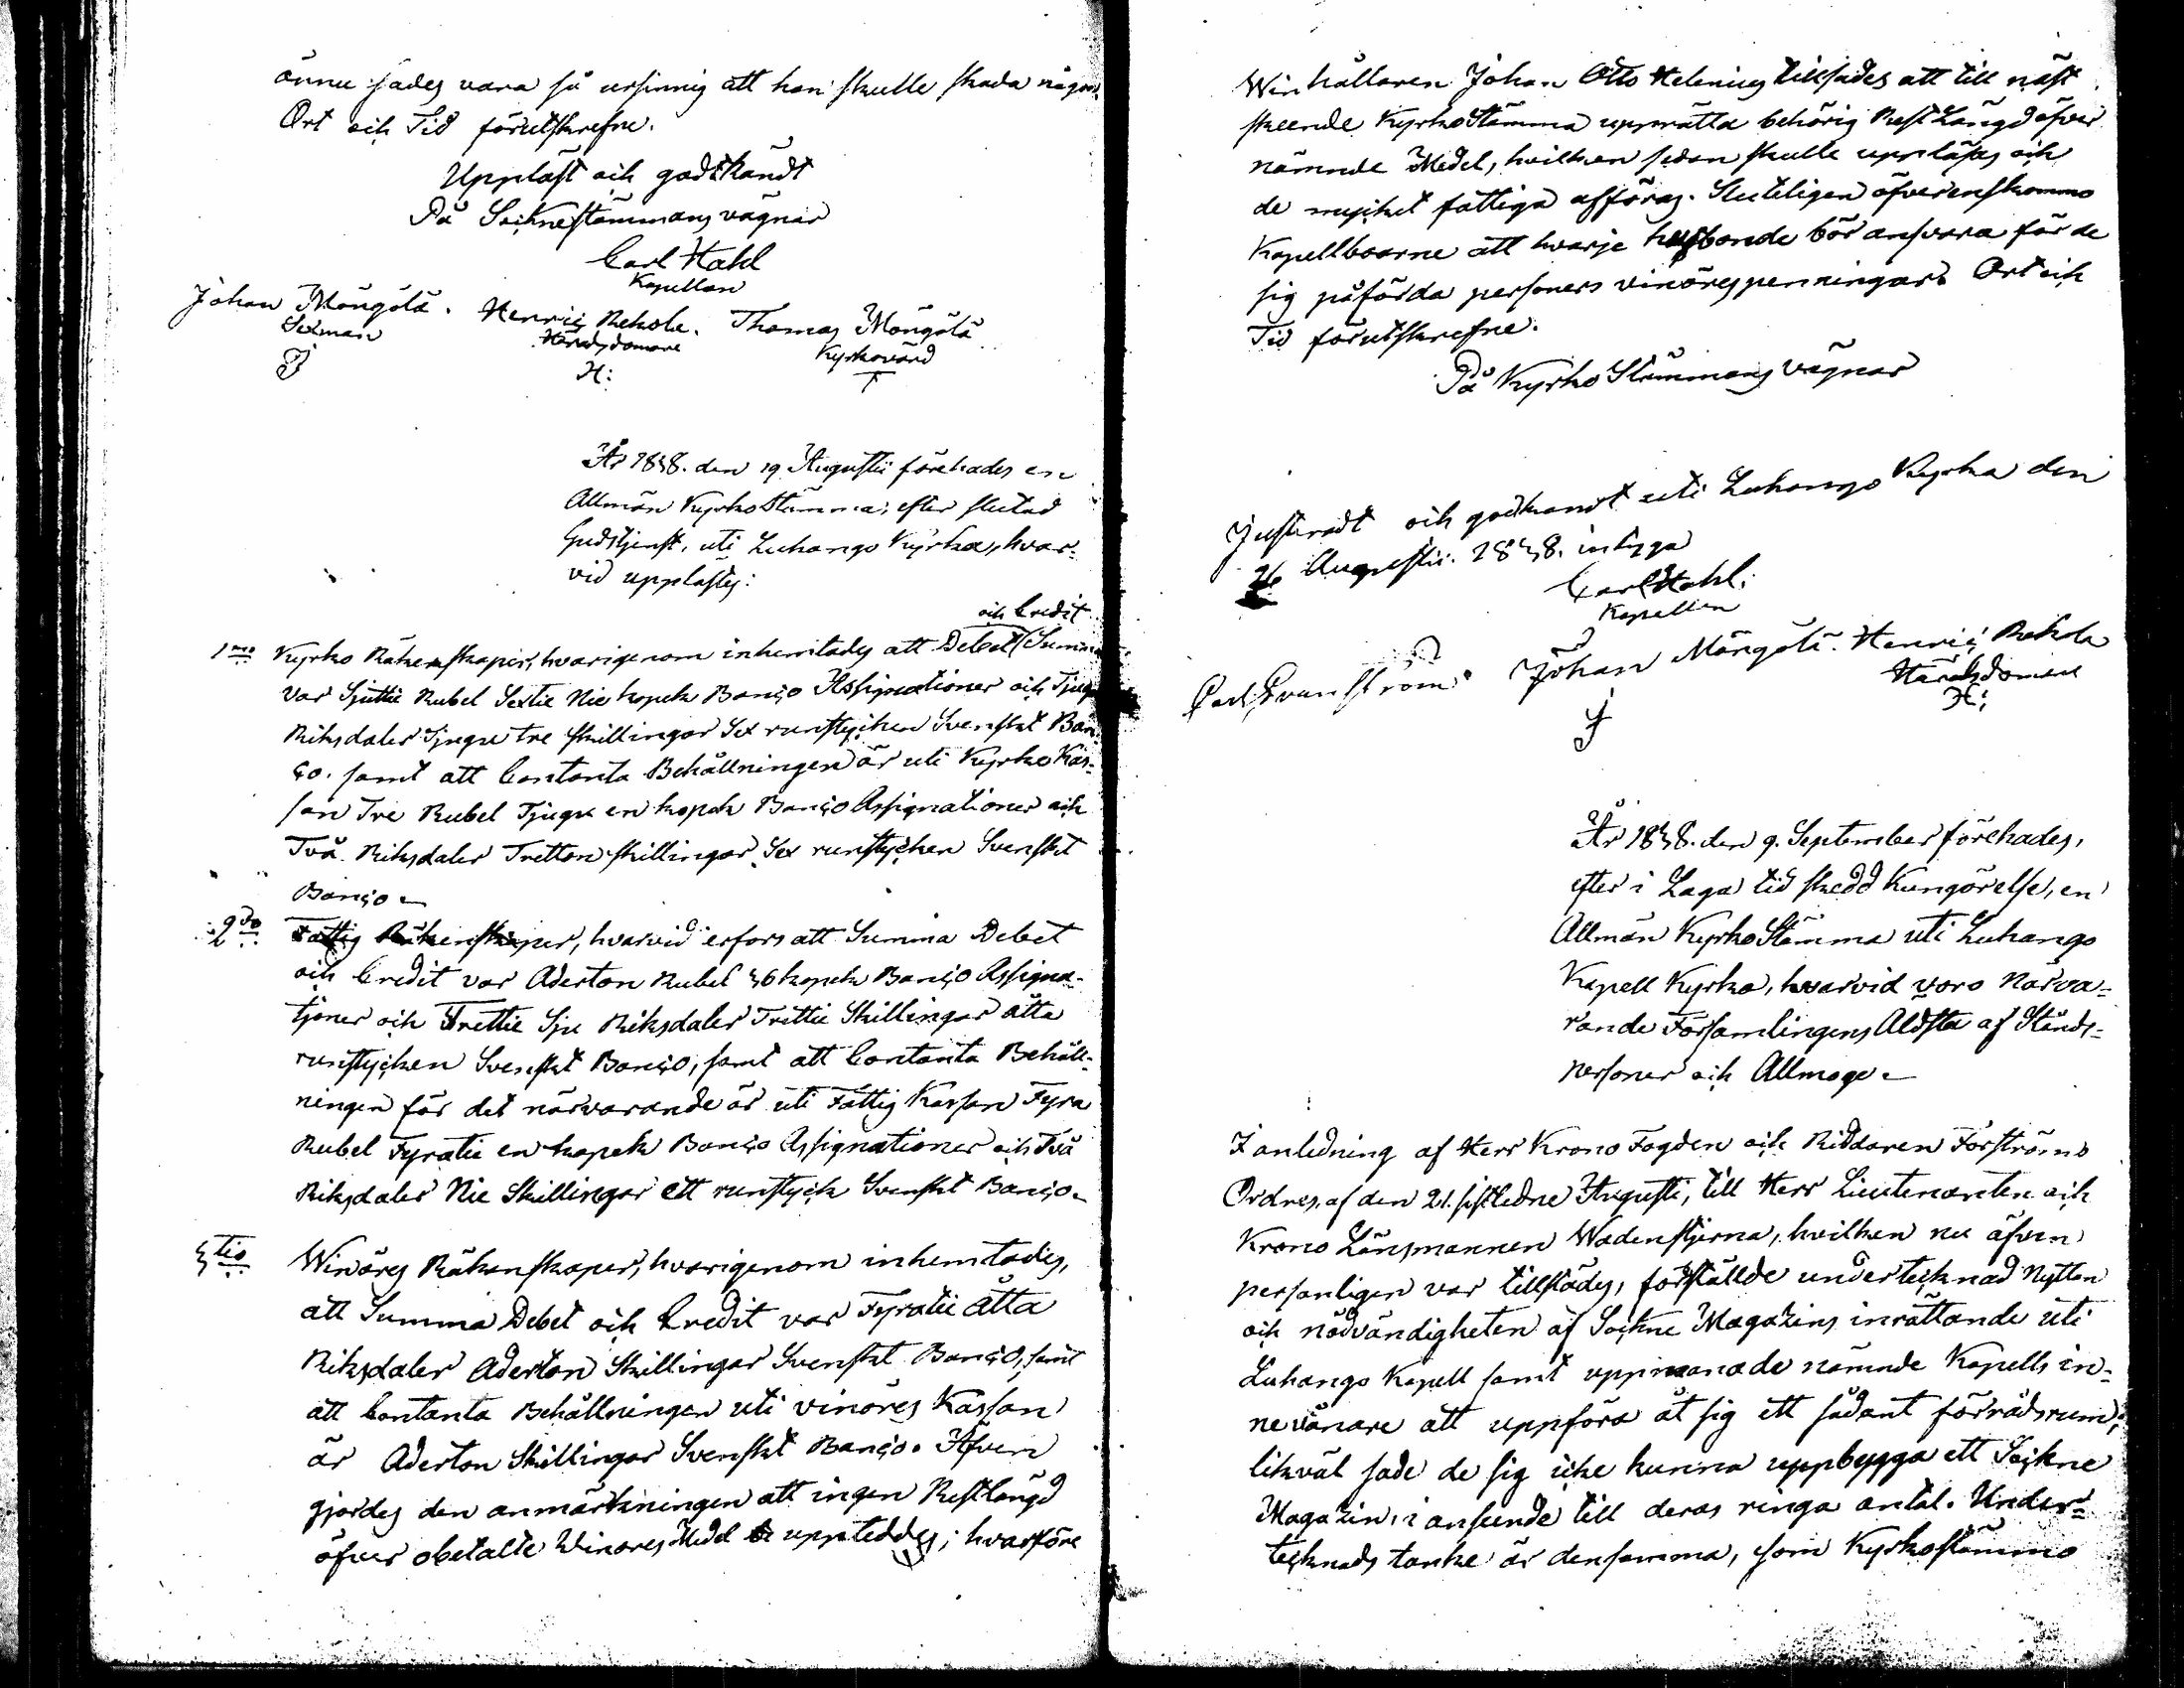 ännu sades vara så ursinnig att han skulle skada någon.
Ort och Tid förutskrefne.
Uppläst och godtkändt
På Socknestämmans vägnar
Carl Hahl
Kapellan
Johan Mängälä. Henric Rekola. Thomas Mängälä
Sexman Häradsdomare Kyrkovärd
J H: T
År 1838. den 19 Augustii förehades en
Allmän KyrkoStämma, efter slutad
Gudstjenst, uti Luhango Kyrka, hvar-
vid upplästes:
och Credit
1mo Kyrko Räkenskaper, hvarigenom inhemtades att Debet Summa
var Sjuttie Rubel Sextie Nie kopek Banco Assignationer och Tjugu
Riksdaler Tjugu tre skillingar Sex runstycken Svenskt Ban-
co. samt att Contanta Behållningen är uti Kyrko Kas-
san Tre Rubel Tjugu en kopek Banco Assignationer och
Två Riksdaler Tretton skillingar Sex runstycken Svenskt
Banco
2do Fattig Räkenskaper, hvarvid erfors att Summa Debet
och Credit var Aderton Rubel 36 kopek Banco Assigna-
tjoner och Trettie Sju Riksdaler Trettie Skillingar åtta
runstycken Svenskt Banco, samt att Contanta Behåll-
ningen för det närvarande är uti Fattig Kassan Fyra
Rubel Fyratie en kopek Banco Assignationer och Två
Riksdaler Nie Skillingar ett runstyck Svenskt Banco
3tio Winöres Räkenskaper, hvarigenom inhemtades,
att Summa Debet och Credit var Fyratie åtta
Riksdaler Aderton Skillingar Svenskt Banco, samt
att Contanta Behållningen uti vinöres Kassan
är Aderton Skillingar Svenskt Banco. Äfven
gjordes den anmärkningen att ingen Restlängd
öfver obetalte Winöres Medel uppteddes; hvarföre
Winhållaren Johan Otto Helenius tillsades att till näst
skeende KyrkoStämma upprätta behörig Rest Längd öfver
nämnde Medel, hvilken sedan skulle uppläsas och
de mycket fattiga afföras. Sluteligen öfverenskommo
Kapellboarne att hvarje husbonde bör ansvara för de
sig påförda personers vinörespenningar. Ort och
Tid förutskrefne.
På KyrkoStämmans vägnar
Justeradt och godkandt uti Luhango Kyrka den
26 Augustii 1838. intyga
Carl Hahl.
Kapellan
Carl Granström. Johan Mängälä. Henric Rekola
Häradsdomare
J H:
År 1838. den 9. September förehades,
efter i Laga tid skedd Kungörelse, en
Allmän KyrkoStämma uti Luhango
Kapell Kyrka, hvarvid voro Närva-
rande Församlingens Äldsta af Stånds-
personer och Allmoge
I anledning af Herr Krono Fogden och Riddaren Forströms
Ordres, af den 21. sistledne Augusti, till Herr Lieutenanten och
Krono Länsmannen Wadenstjerna, hvilken nu äfven
personligen var tillstädes, förställde undertecknad Nyttan
och nödvändigheten af Sockne Magazins inrättande uti
Luhango Kapell samt uppmanade nämnde Kapells in-
nevånare att uppföra åt sig ett sådant förrådsrum;
likväl sade de sig icke kunna uppbygga ett Sockne
Magazin, i anseende till deras ringa antal. Under-
tecknads tanke är densamma, som Kyrkostämmo